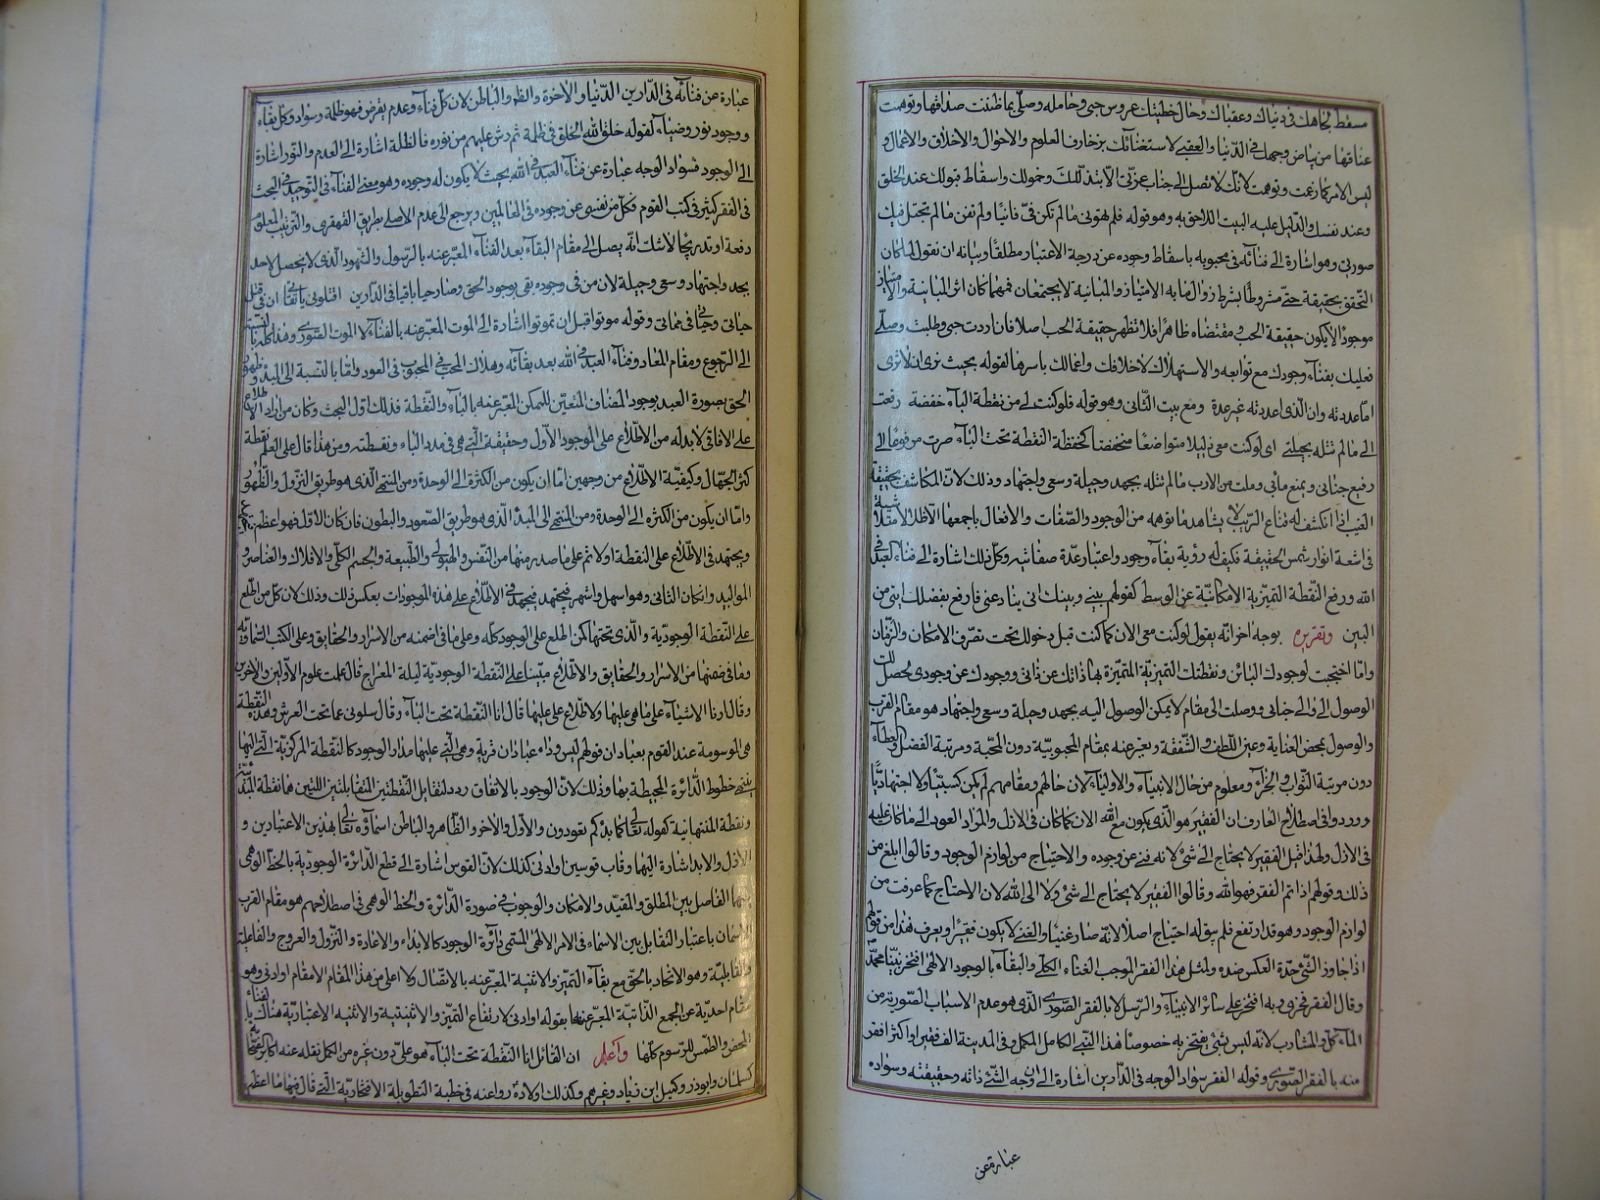 مسقط لجاهك فى دنياك وعقباك وحال خطيتك عروس حبى وحامله وصلى بما ظننت صداقها وتوهمت
عناقها من بياض وجهك فى الدّنيا والعقبى لاستغنائك بزخارف العلوم والاحوال والاخلاق والاعمال و
ليس الامر كما زعمت وتوهمت لانّك لا تصل الى جناب عزّتى الّا بتذلّلك وخمولك واسقاط قبولك عند الخلق
وعند نفسك والدّليل عليه البيت اللاحق به وهو قوله فلم تهونى ما لم تكن فىّ فانيًا ولم تفن ما لم تجتلى فيك
صورتى وهو اشارة الى فنائه فى محبوبه باسقاط وجوده عن درجة الاعتبار مطلقًا وبيانه ان نقول لما كان
التّحقق بحقيقة حتّى مشروطًا بشرط زوال ما به الامتياز والمباينة لا يجتمعان فمهما كان اثر المباينة والامتياز
موجودًا لا يكون حقيقة الحب ومقتضاه ظاهرًا فلا تظهر حقيقة الحب اصلا فان اردت حبى وطلبت وصلى
فعليك بفناء وجودك مع توابعه والاستهلاك لاخلاقك واعمالك باسرها لقوله بحيث ترى ان لا ترى
ما عددته وان الّذى اعددته غير عدة ومع بيت الثّانى وهو قوله فلو كنت لى من نقطة الباء خفضة رفعت
الى ما لم تنله بحيلتى اى لو كنت معى ذليلا متواضعًا منخفضا كخفضة النقطة تحت الباء صرت مرفوعًا الى
رفيع جنابى ومنبع مابى ونلت من الارب ما لم تنله بجهد وحيلة وسعى واجتهاد وذلك لانّ المكاشف بحقيقة
الغيب اذا انكشف له قناع الرّيب لا يشاهد ما توهمه من الوجود والصّفات والافعال باجمعها الّا ظلا متلاشية
فى اشعة انوار شمس الحقيقة فكيف له رؤية بقاء وجود واعتبار عدّة صفاتيه وكلّ ذلك اشارة الى فناء العبد فى
الله ورفع النّقطة التّميزية الامكانيّة عن الوسط كقولهم بينى وبينك انى ينازعنى فارفع بفضلك انيّى من
البين وتقريره بوجه اخر انّه يقول لو كنت معى الان كما كنت قبل دخولك تحت تصرّف الامكان والزّمان
وما احتجبت بوجودك البائن ونقطتك التميزية المتميّزة بها ذاتك عن ذاتى ووجودك عن وجودى لحصل لك
الوصول الىّ والى جنابى ووصلت الى مقام لا يمكن الوصول اليه بجهد وحيلة وسعى واجتهاد هو مقام القرب
والوصول بمحض العناية وعين اللّطف والشّفقة ويعبّر عنه بمقام المحبوبيّة دون المحبّية ومرتبة الفضل والعطاء
دون مرتبة الثّواب والجزاء ومعلوم من حال الانبياء والاولياء لان حالهم ومقامهم لم يكن كسبيًّا ولا اجتهاديًّا
وورد فى اصطلاح العارف ان الفقير هو الّذى يكون مع الله الان كما كان فى الازل والمراد العود الى ما كان عليه
فى الازل ولهذا قيل الفقير لا يحتاج الى شئ لانه فنى عن وجوده والاحتياج من لوازم الوجود وقالوا ابلغ من
ذلك وقولهم اذا تم الفقر فهو الله وقالوا الفقير لا يحتاج الى شئ ولا الى الله لان الاحتياج كما عرفت من
لوازم الوجود وهو قد ارتفع فلم يبق له احتياج اصلًا لانّه صار غنيا والغنى لا يكون فقيرًا ويعرف هذا من قولهم
اذا جاوز الشّئ حدّه انعكس ضده ولمثل هذا الفقر الموجب الغناء الكلّى والبقاء بالوجود الالهى افتخر نبيّنا محمّد
وقال الفقر فخرى وبه افتخر على سائر الانبياء والرّسل لا بالفقر الصّورى الّذى هو عدم الاسباب الصّورية من
المأكل والمشارب لانّه ليس شئ يفتخر به خصوصًا هذا النّبى الكامل المكمل وفى المدينة الف فقير واكثر افقر
منه بالفقر الصّورى وقوله الفقر سواد الوجه فى الدّارين اشارة الى ان وجه الشّئ ذاته وحقيقته وسواده
عبارة عن
عبارة عن فنائه فى الدّارين الدّنيا والاخرة والظّاهر والباطن لان كلّ فناء وعدم يفرض فهو ظلمة وسواد وكلّ بقاء
ووجود نور وضياء لقوله خلق الله الخلق فى ظلمة ثم رش عليهم من نوره فالظلمة اشارة الى العدم والنّور اشارة
الى الوجود فسواد الوجه عبارة عن فناء العبد فى الله بحيث لا يكون له وجوده وهو معنى الفناء فى التّوحيد فى البحث
فى الفقر كثير فى كتب القوم فكلّ من نفسى عن وجوده فى العالمين ويرجع الى عدم الاصلى بطريق القهقرى والترتيب المعلوم
دفعة او تدريجًا لا شك انّه يصل الى مقام البقاء بعد الفناء المعبّر عنه بالرّسول والشّهود الّذى لا يحصل لاحد
بجد واجتهاد وسعى وحيلة لان من فى وجوده بقى بوجود الحق وصار حيا باقيا فى الدّارين اقتلونى يا ثقاتى ان فى قتلى
حياتى وحياتى فى مماتى وقوله موتوا قبل ان تموتوا اشارة الى الموت المعبّر عنه بالفناء لا الموت الصّورى وهذا كله بالنّسبة
الى الرّجوع ومقام المعاد وفناء العبد فى الله بعد بقائه وهلاك المحب فى المحبوب فى العود وامّا بالنّسبة الى المبدء وظهور
الحق بصورة العبد بوجود المضاف المتعيّن للممكن المعبّر عنه بالباء والنّقطة فذلك اوّل البحث وكان من اراد الاطلاع
على الافاقى لا بدله من الاطّلاع على الموجود الاوّل وحقيقة الّتى هى فى مدد الباء ونقطته ومن هذا قال على العلم نقطة
كثرّ الجهّال وكيفيّة الاطّلاع من وجهين امّا ان يكون من الكثرة الى الوحدة ومن المنتهى الّذى هو طريق النّزول والظّهور
وامّا ان يكون من الكثرة الى الوحدة ومن المنتهى الى المبدء الّذى هو طريق الصّعود والبطون فان كان الاوّل فهو اعظم
ويجتهد فى الاطّلاع على النّقطة اولا ثم على ما صدر منها من النّفس والهيولى والطّبيعة والجسم الكلّى والافلاك والعناصر و
المواليد وان كان الثّانى وهو اسهل واشهر فيجتهد فيجهد فى الاطّلاع على هذه الموجودات بعكس ذلك وذلك لان كلّ من اطّلع
على النّقطة الوجودية والّذى تحتها كمن اطّلع على الوجود كلّه وعلى ما فى ضمنه من الاسرار والحقايق وعلى الكتب السّماوية
وما فى ضمنها من الاسرار والحقايق والاطّلاع مبيّنا على النّقطة الوجودية ليلة المعراج قال علمت علوم الاوّلين والاخرين
وقال ارنا الاشياء على ما هى عليها ولاطّلاع على عليها قال انا النّقطة تحت الباء وقال سلونى عما تحت العرش وهذه النّقطة
هى الموسومة عند القوم بعبادان قولهم ليس وراء عبادان قرية وهى الّتى عليها مدار الوجود كالنقطة المركزية الّتى اليها
ينتهى خطوط الدّائرة المحيطة بها وذلك لانّ الوجود بالاتفاق ردد لتقابل النّقطتين المتقابلتين اللّتين هما نقطة المبدء
ونقطة المنتهائية كقوله تعالى كما بدئكم تعودون والاوّل والاخر والظّاهر والباطن اسماؤه تعالى بهذين الاعتبارين و
الازل والابد اشارة اليهما وقاب قوسين او ادنى كذلك لانّ القوس اشارة الى قطع الدّائرة الوجوديّة بالخطّ الوهمى
الفاصل بين المطلق والمقيّد والامكان والوجوب فى صورة الدّائرة والخط الوهمى فى اصطلاحهم هو مقام القرب
باعتبار التّقابل بين الاسماء فى الامر الالهى المسمّى دائرة الوجود كالابداء والاعادة والنّزول والعروج والفاعلية
والقابليّة وهو الاتحاد بالحق مع بقاء التّميّز والاثنية المعبّر عنه بالاتّصال ولا اعلى من هذا المقام الا مقام او ادنى وهو
مقام احديّة عن الجمع الذّاتية المعبّر عنها بقوله او ادنى لارتفاع التّميّز والاثنينية والاثنيه الاعتباريّة هناك بالفناء
المحض والطّمس للرّسوم كلّها واعلم ان القائل انا النّقطة تحت الباء هو علىّ دون غيره من الكمل نقله عنه اكابر
كسلمان وابوذر وكميل ابن زياد وغيرهم وكذلك اولاده رواعنه فى خطبة التّطويلة الافتخاريّة الّتى قال فيها ما اعظم